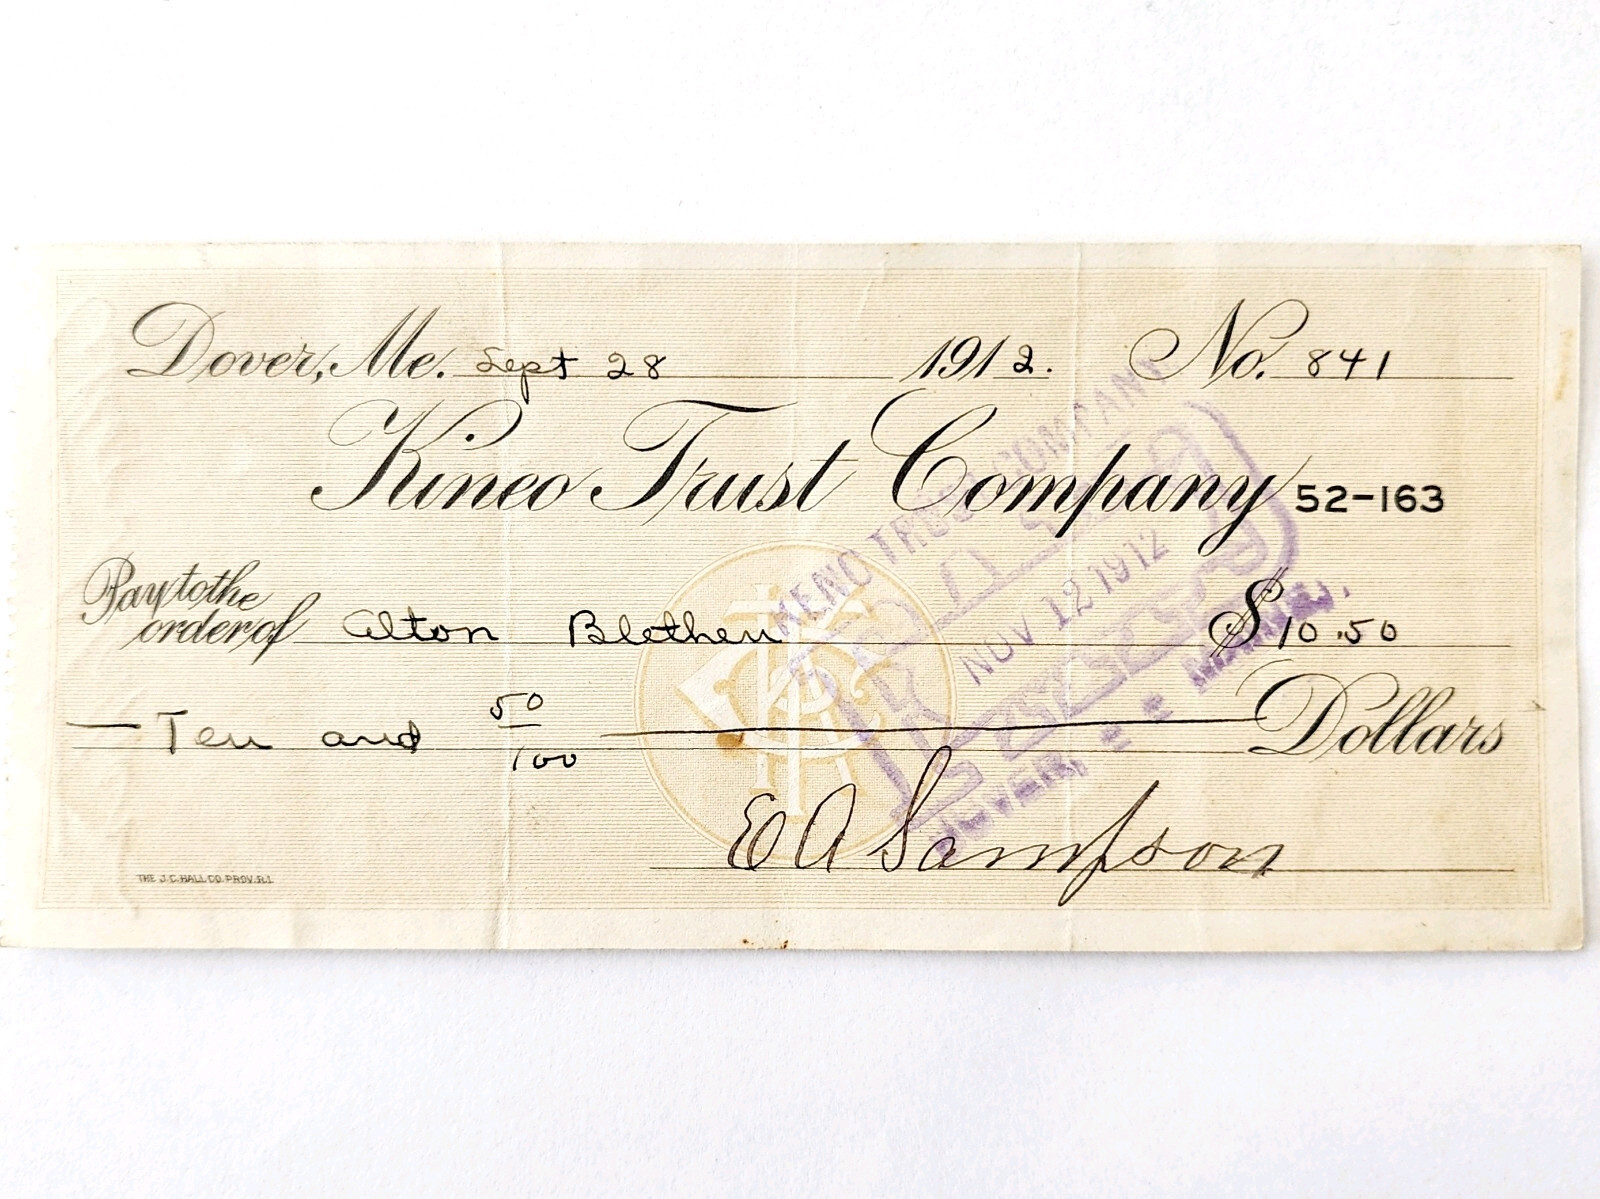 Dover, Me. Sept 28 1912. No. 841
Kineo Trust Company 52-163
Pay to the
order of Alton Blethen $10.50
Ten and 50/100 Dollars
E A Sampson
THE J.C. HALL CO. PROV. R.I.
TRUST COMPANY
PAID
NOV 12 1912
DOVER, MAINE.